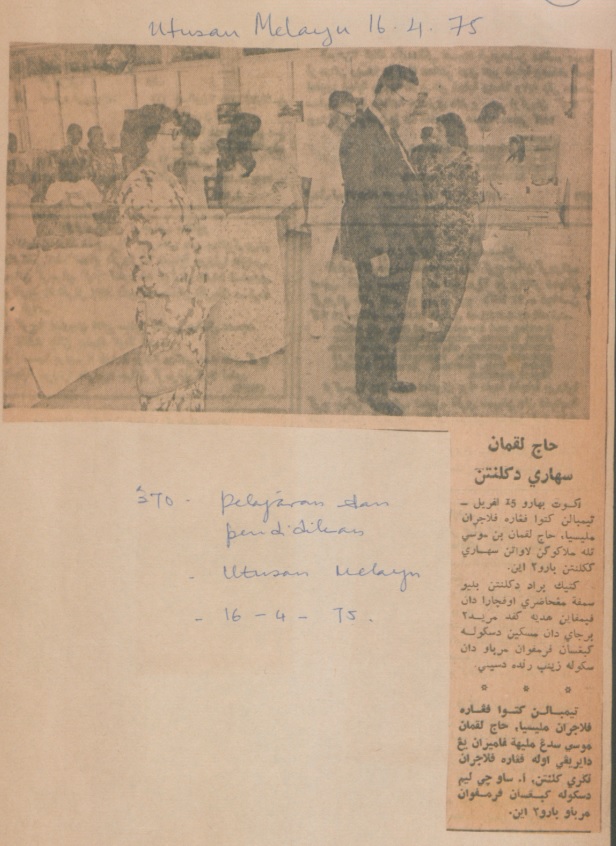 Utusan Melayu 16.4.75
حاج لقمان
سهاري دکلنتن
کوت بهارو 15 افريل —
تيمبالن کتوا ڤڠاره ڤلاجران
مليسيا، حاج لقمان بن موسي
تله ملاکوکن لاواتن سهاري
ککلنتن بارو٢ اين.
کتيک براد دکلنتن بليو
سمڤت مڠحاضري اوڤچارا
ڤرجاي دان مسکين دسکوله
کبڠسأن ڤرمڤوان مرباو دان
سکوله زينب رنده دسيني.
* * *
تيمبالن کتوا ڤڠاره
ڤلاجران مليسيا، حاج لقمان
موسي سدڠ مليهت ڤاميران يڠ
دايريڠي اوله ڤڠاره ڤلاجران
نڬري کلنتن، ا. ساو چي ليم
دسکوله کبڠسأن ڤرمڤوان
مرباو بارو٢ اين.
370 - Pelajaran dan
pendidikan
- Utusan Melayu
- 16 - 4 - 75.